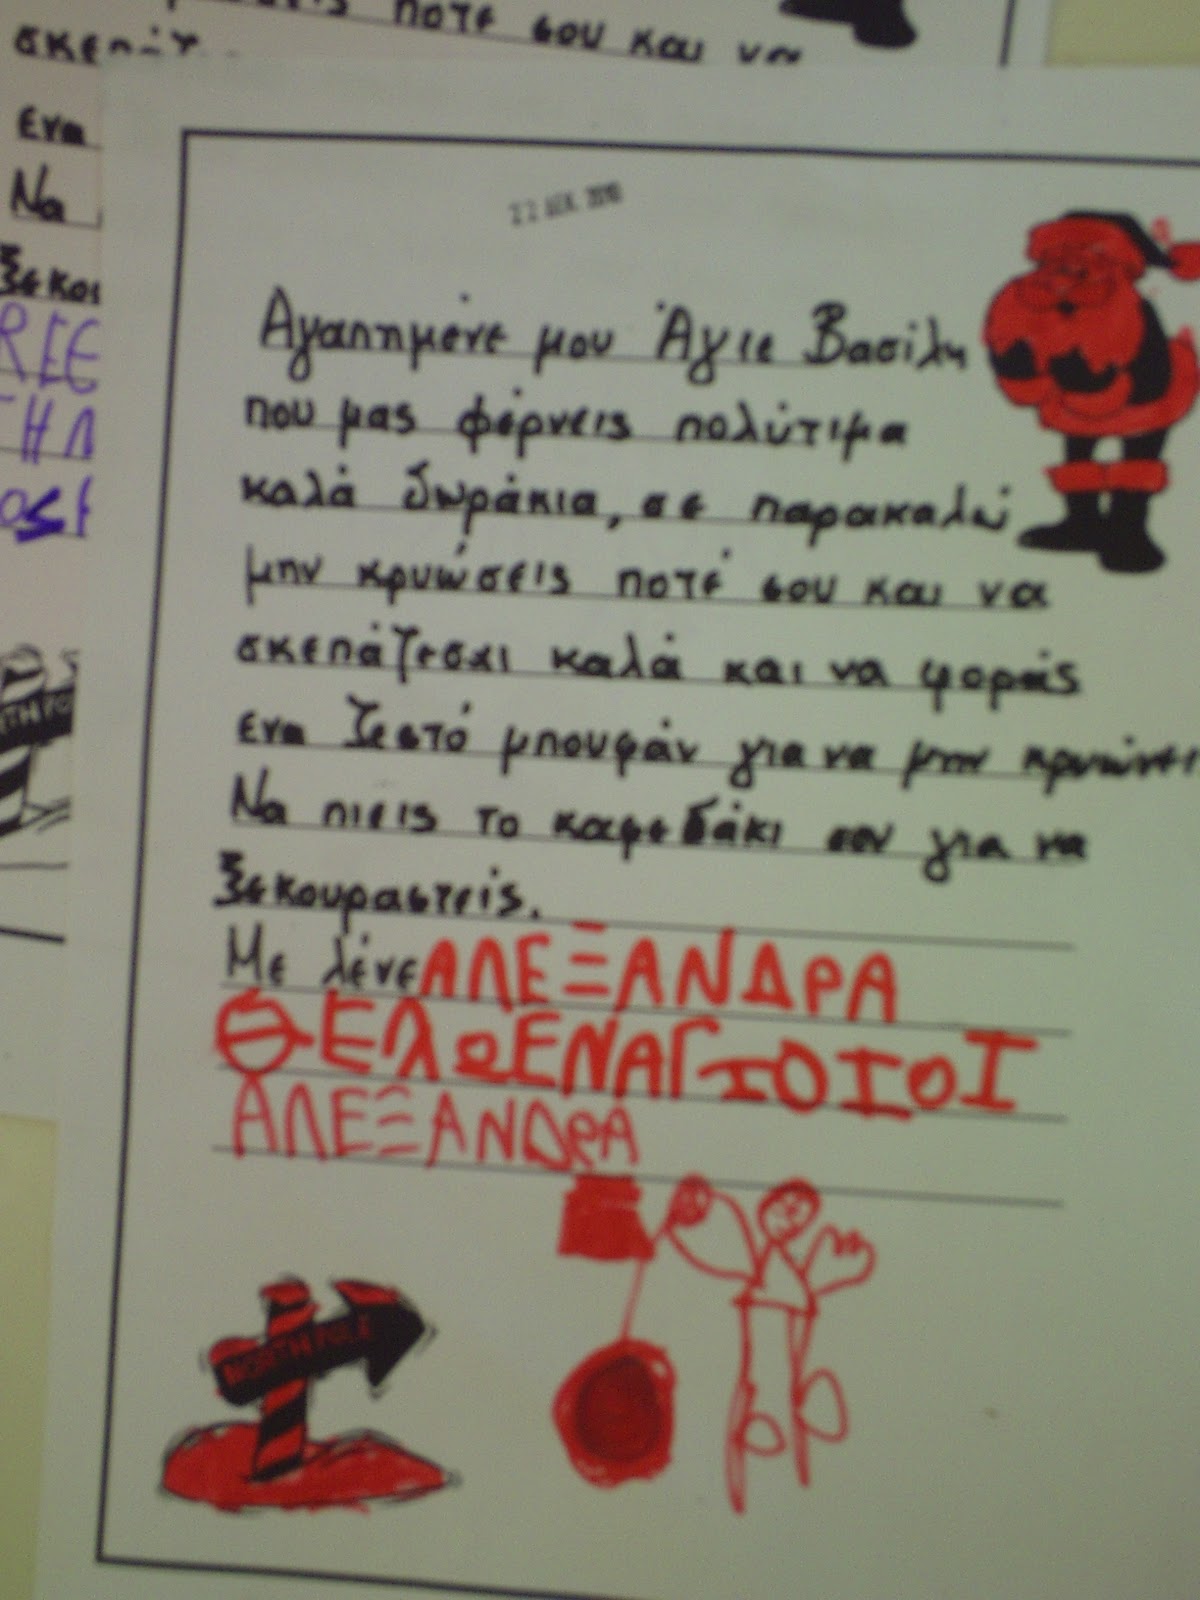 ποτε σου και να
σκεπάζ
ενα
Να
ξεκου
REE
22 ΔΕΚ 2010
Αγαπημένε μου Άγιε Βασίλη
που μας φέρνεις πολύτιμα
καλά δωράκια, σε παρακαλώ
μην κρυώσεις ποτέ σου και να
σκεπάζεσαι καλά και να φοράς
ενα ζεστό μπουφάν για να μην κρυώνει
Να πιεις το καφεδάκι σου για να
ξεκουραστείς.
Με λένε ΑΛΕΞΑΝΔΡΑ
ΘΕΛΩΕΝΑΓΙΟΙΟΙ
ΑΛΕΞΑΝΔΡΑ
NORTH POLE